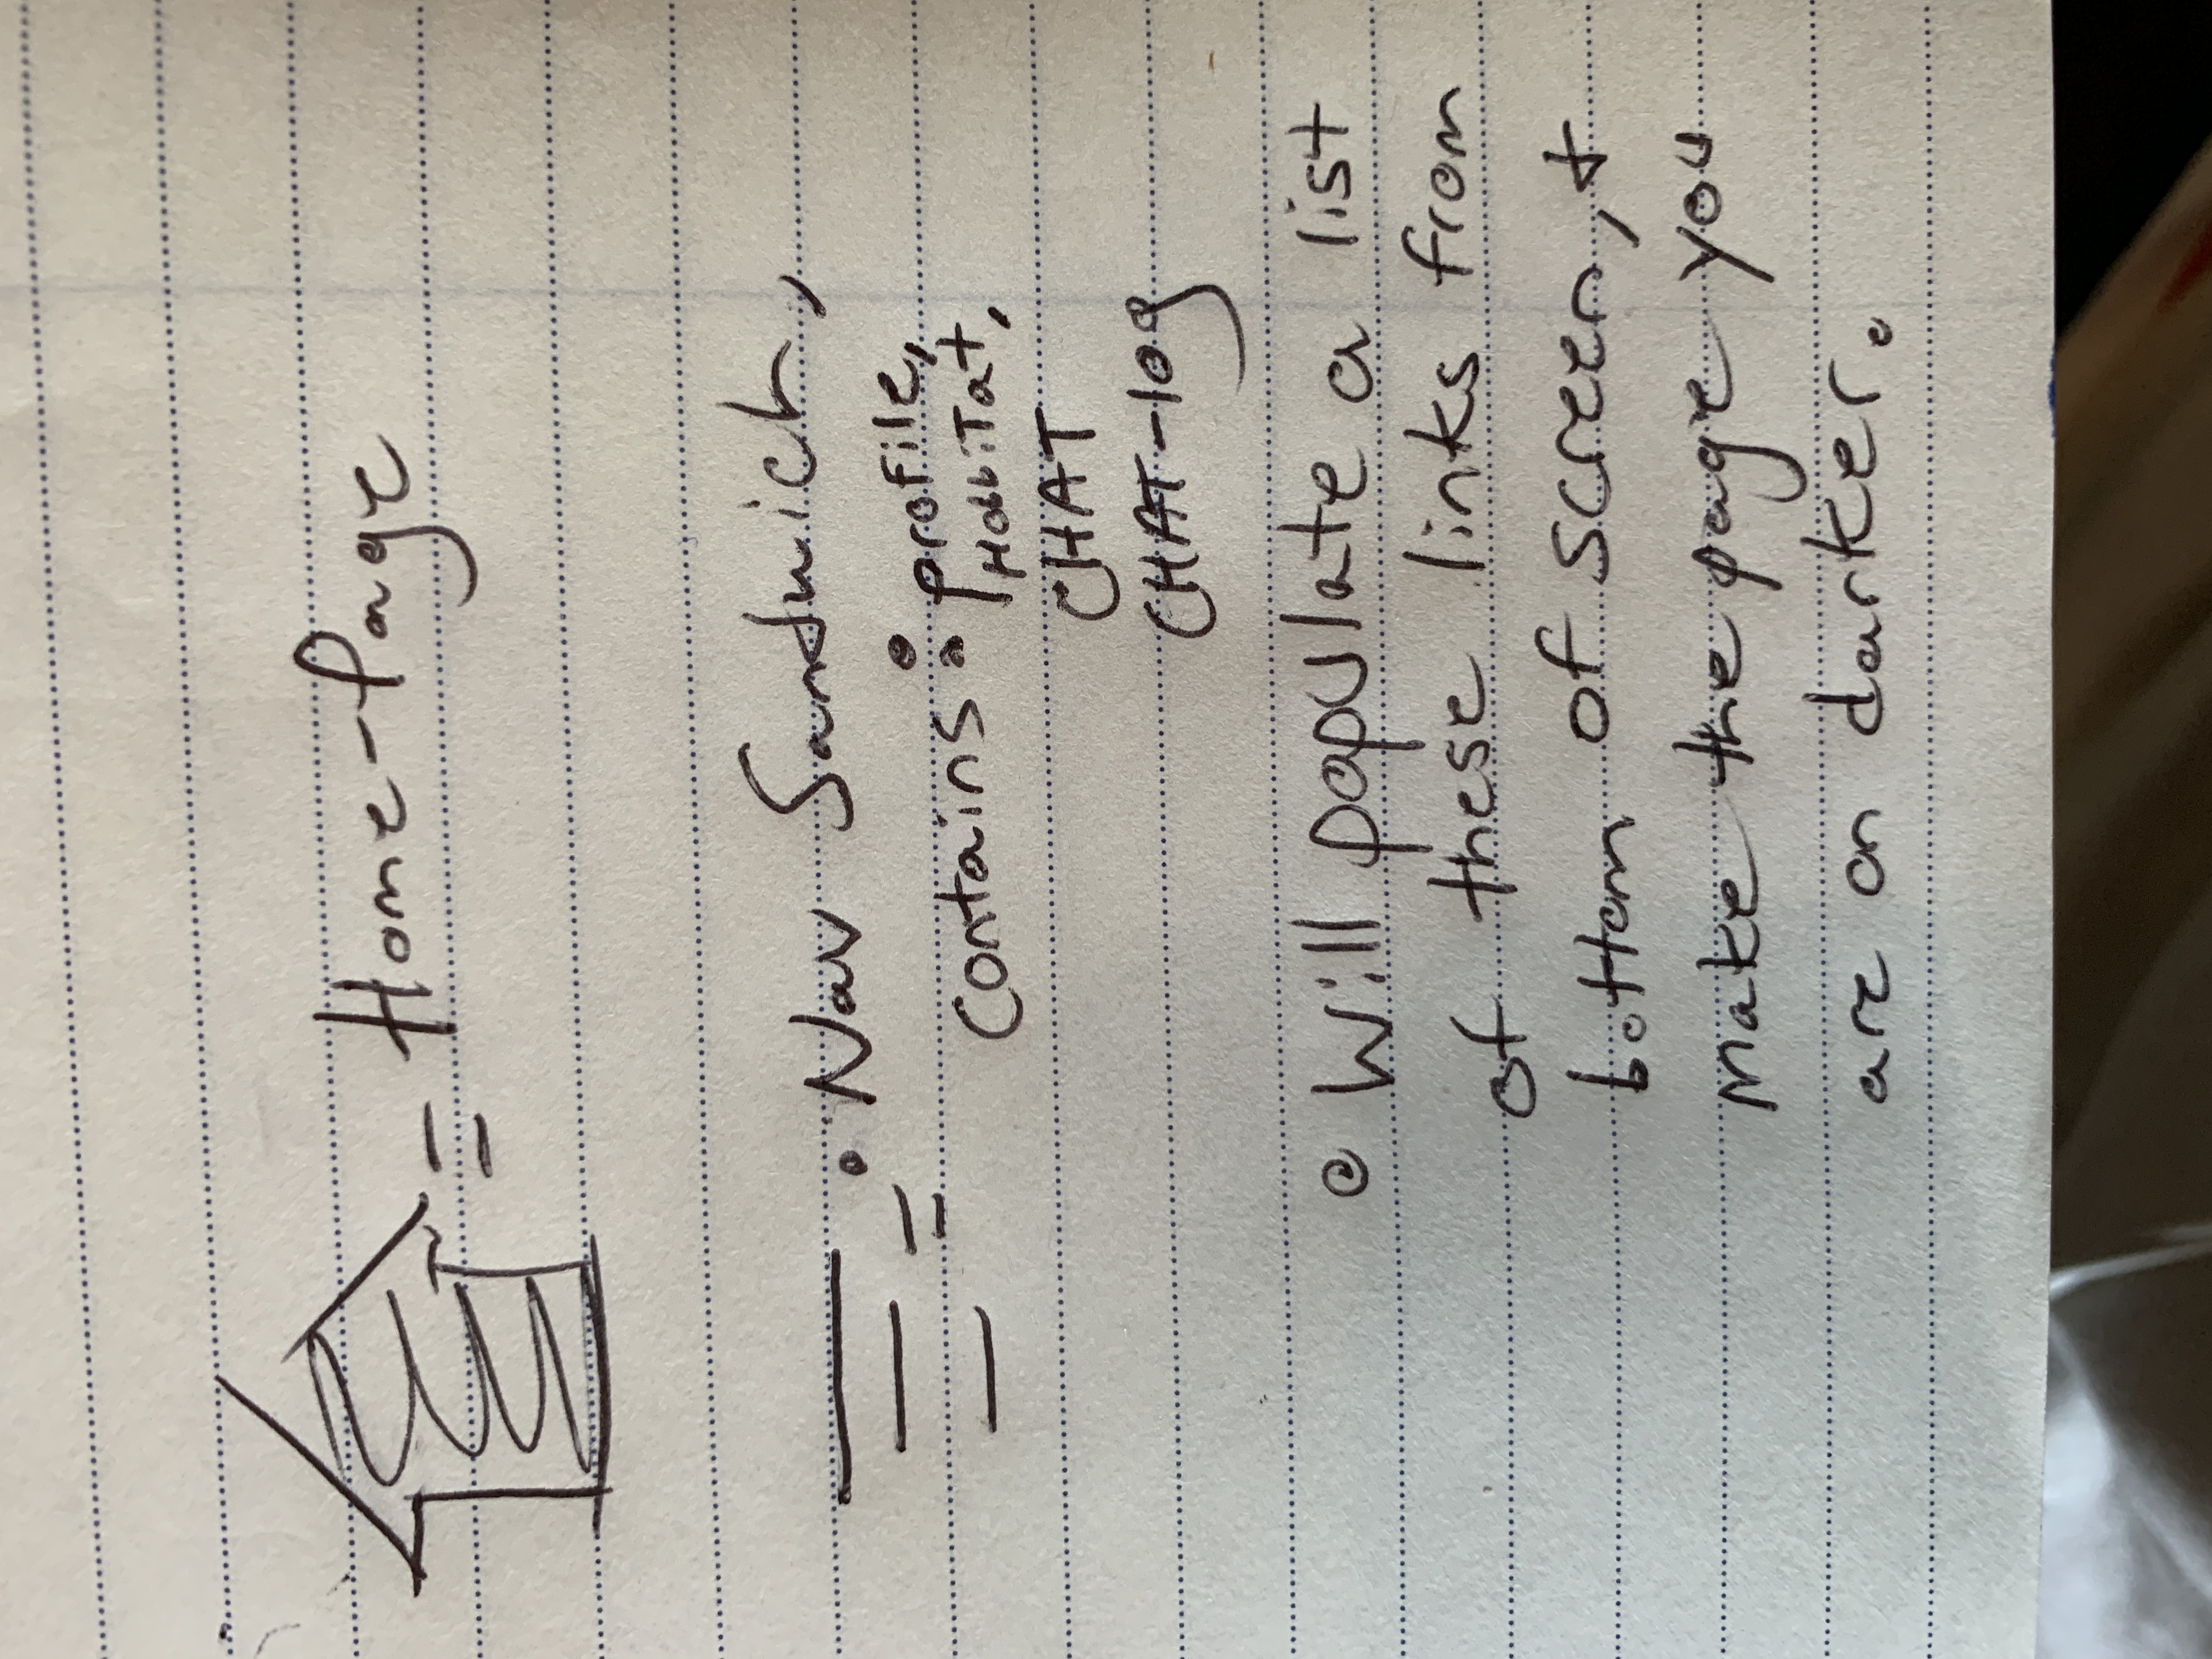 = Home-Page
= • Nav Sandwich,
contains : profile,
HabbiTat,
CHAT
CHAT-log
• Will populate a list
of these links from
bottom of screen, +
Make the page you
are on darker.